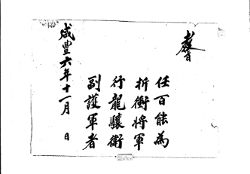 敎旨
任百能為
折衝將軍
行龍驤衛
副護軍者
咸豊六年十一月 日